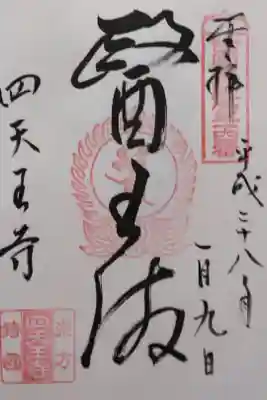 奉拝
平成二十八年
一月九日
醫王殿
四天王寺